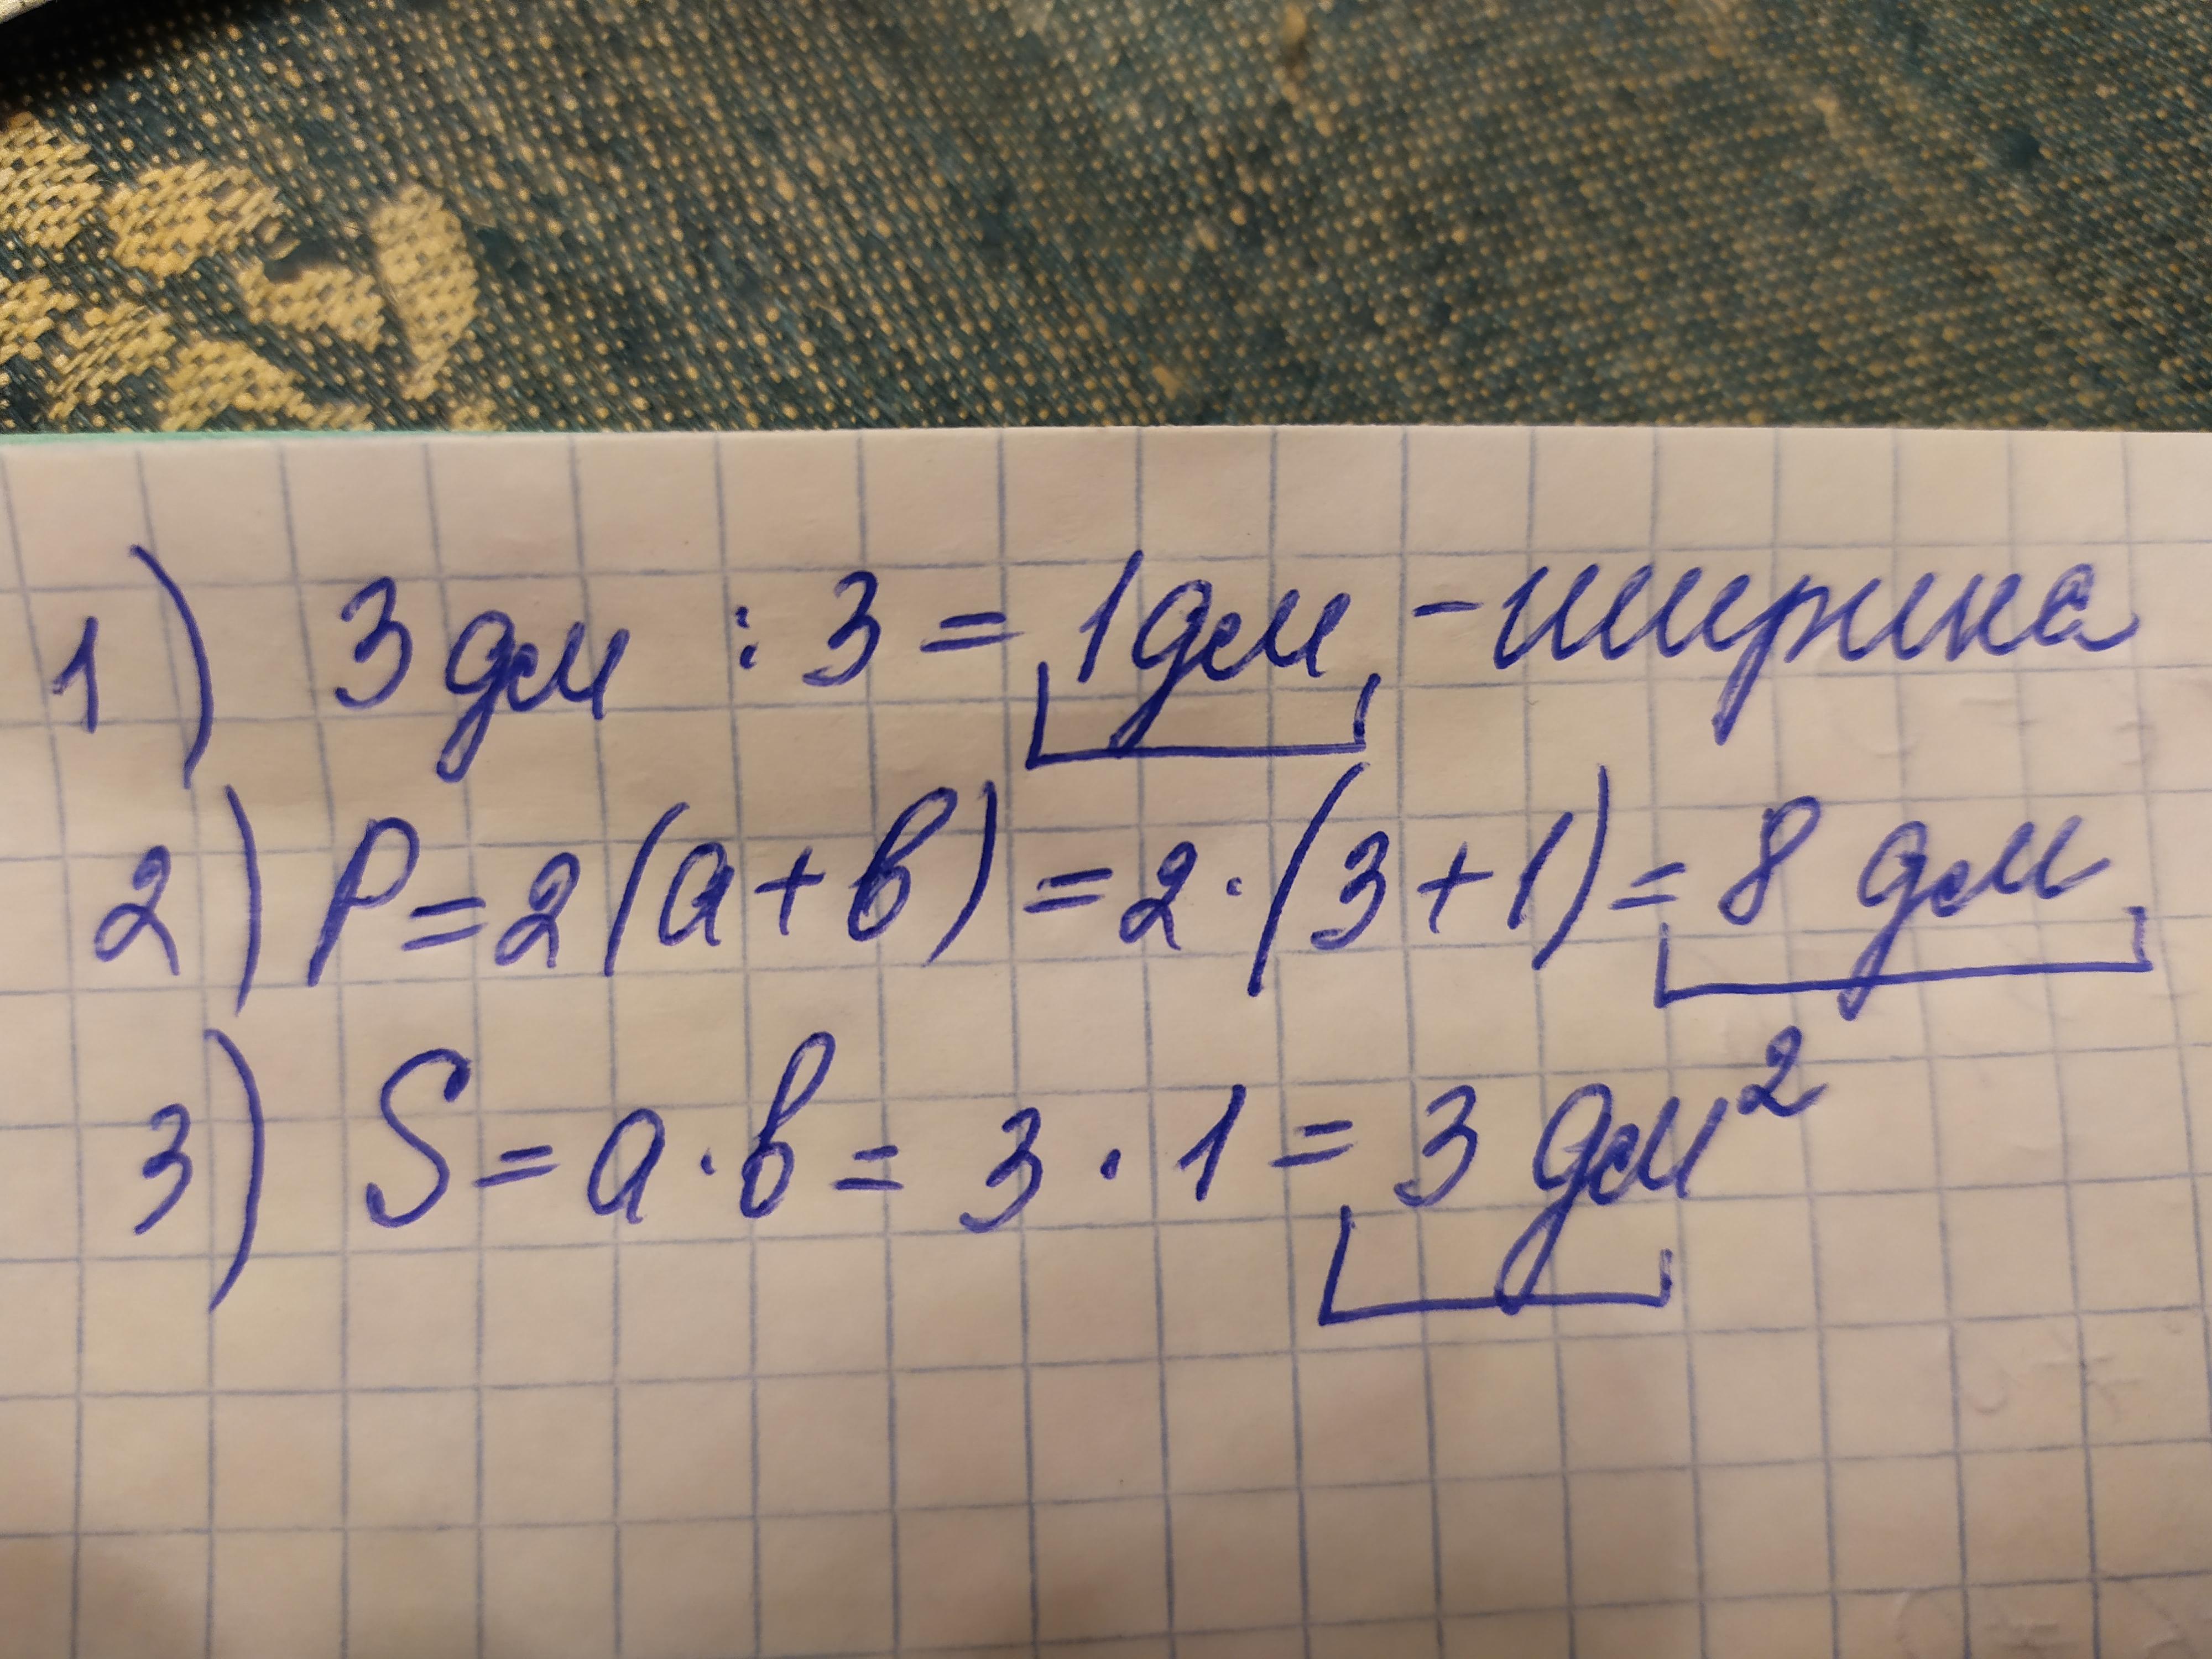 1) 3 дм : 3 = 1 дм - ширина
2) P = 2(a + b) = 2 · (3 + 1) = 8 дм
3) S = a · b = 3 · 1 = 3 дм²